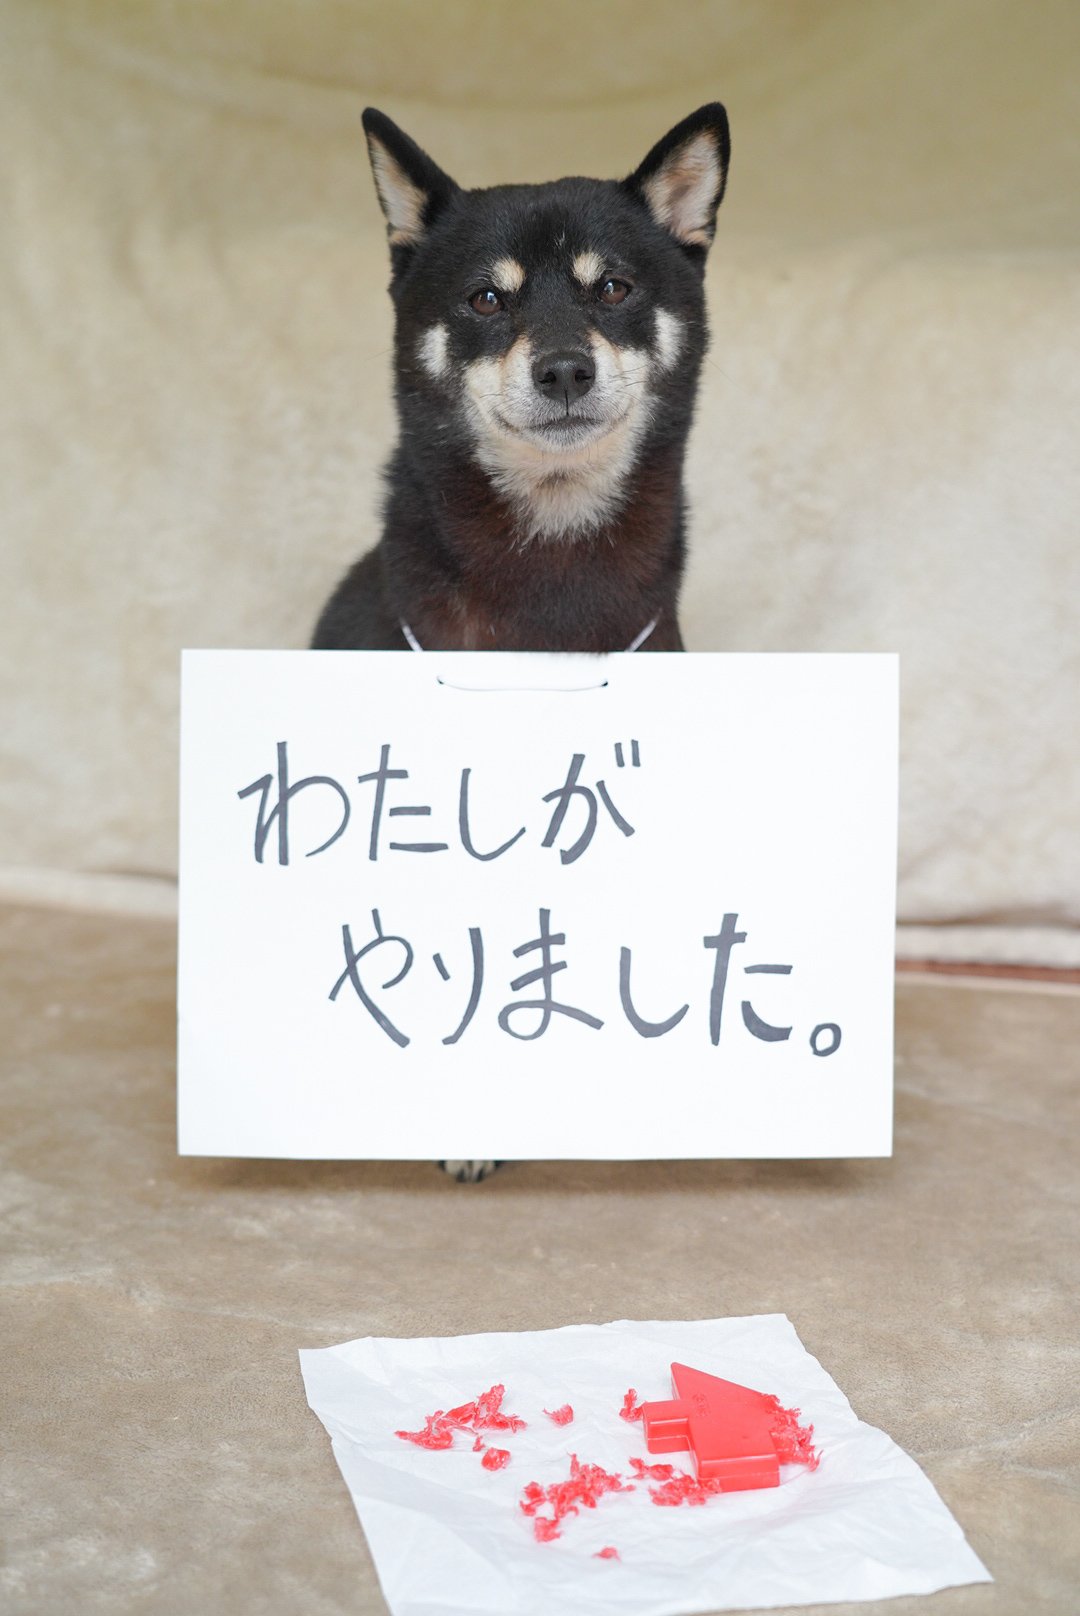 わたしが
やりました。